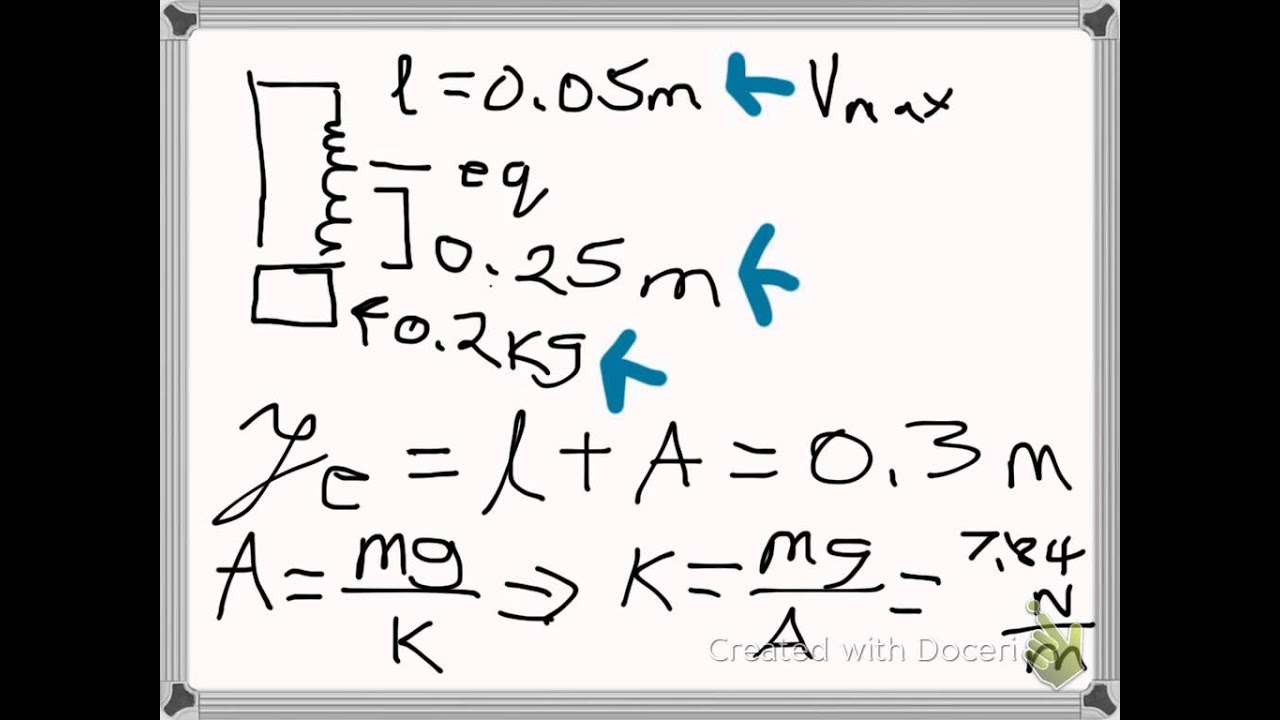 l = 0.05m ← Vmax
eq
0.25 m
←0.2Kg
ye = l + A = 0.3 m
A = mg/K ⇒ K = mg/A = 7.84 N/m
Created with Doceri